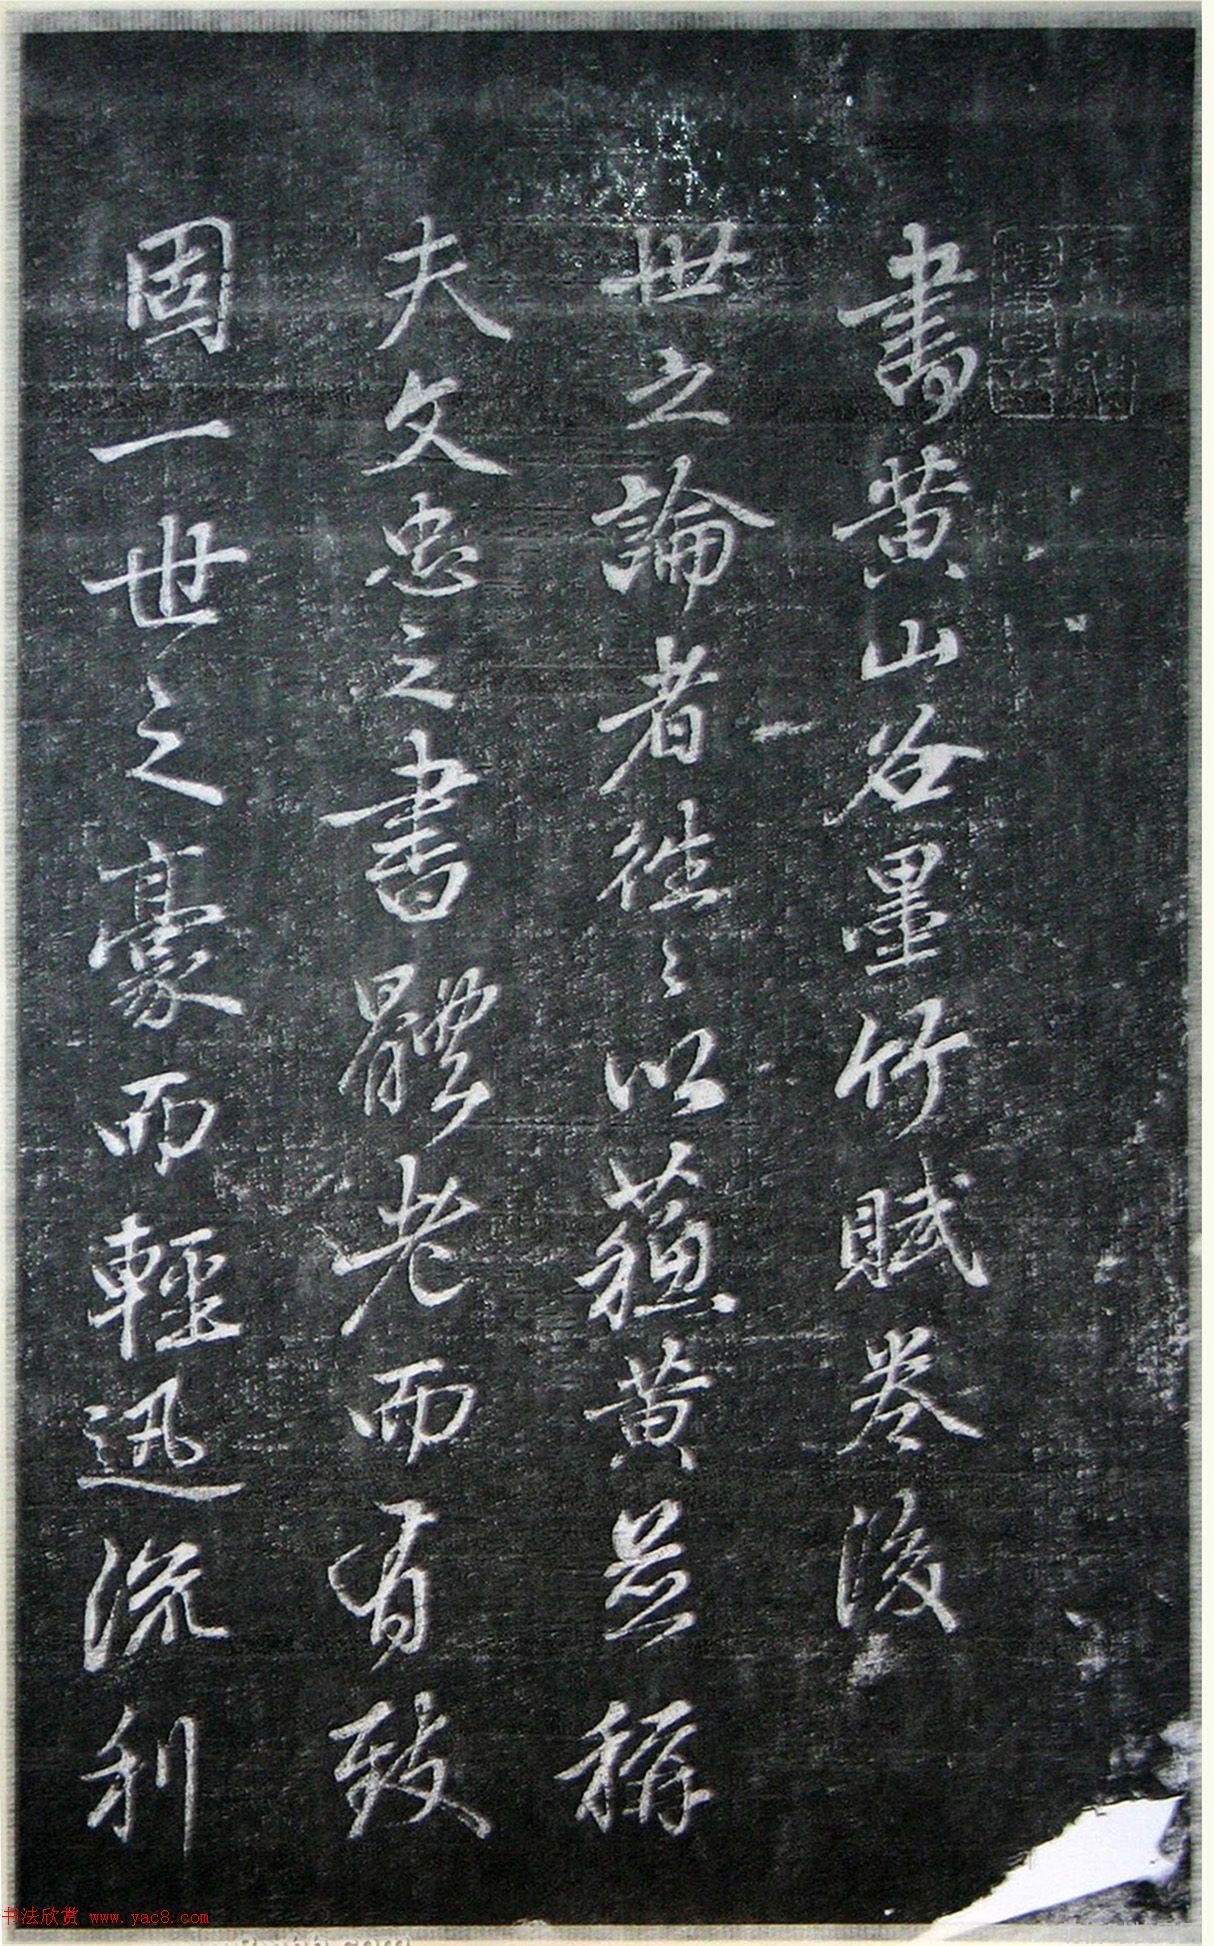 書黄山谷墨竹賦卷後
世之論者往〻以蘓黄並稱
夫文忠之書體老而有致
固一世之豪而輕迅流利
书法欣赏 www.yac8.com